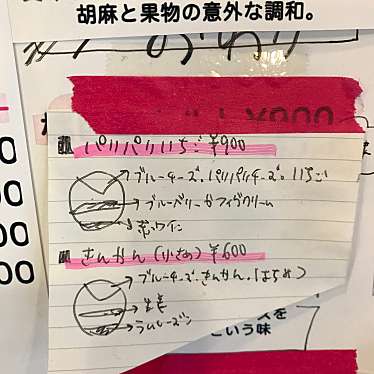 胡麻と果物の意外な調和。
パリパリいちご ¥900
ブルーチーズ、パリパリチーズ、いちご
ブルーベリーかフィグクリーム
赤ワイン
きんかん(小さめ) ¥600
ブルーチーズ、きんかん、(はちみ)
生姜
ラムレーズン
スを
という味